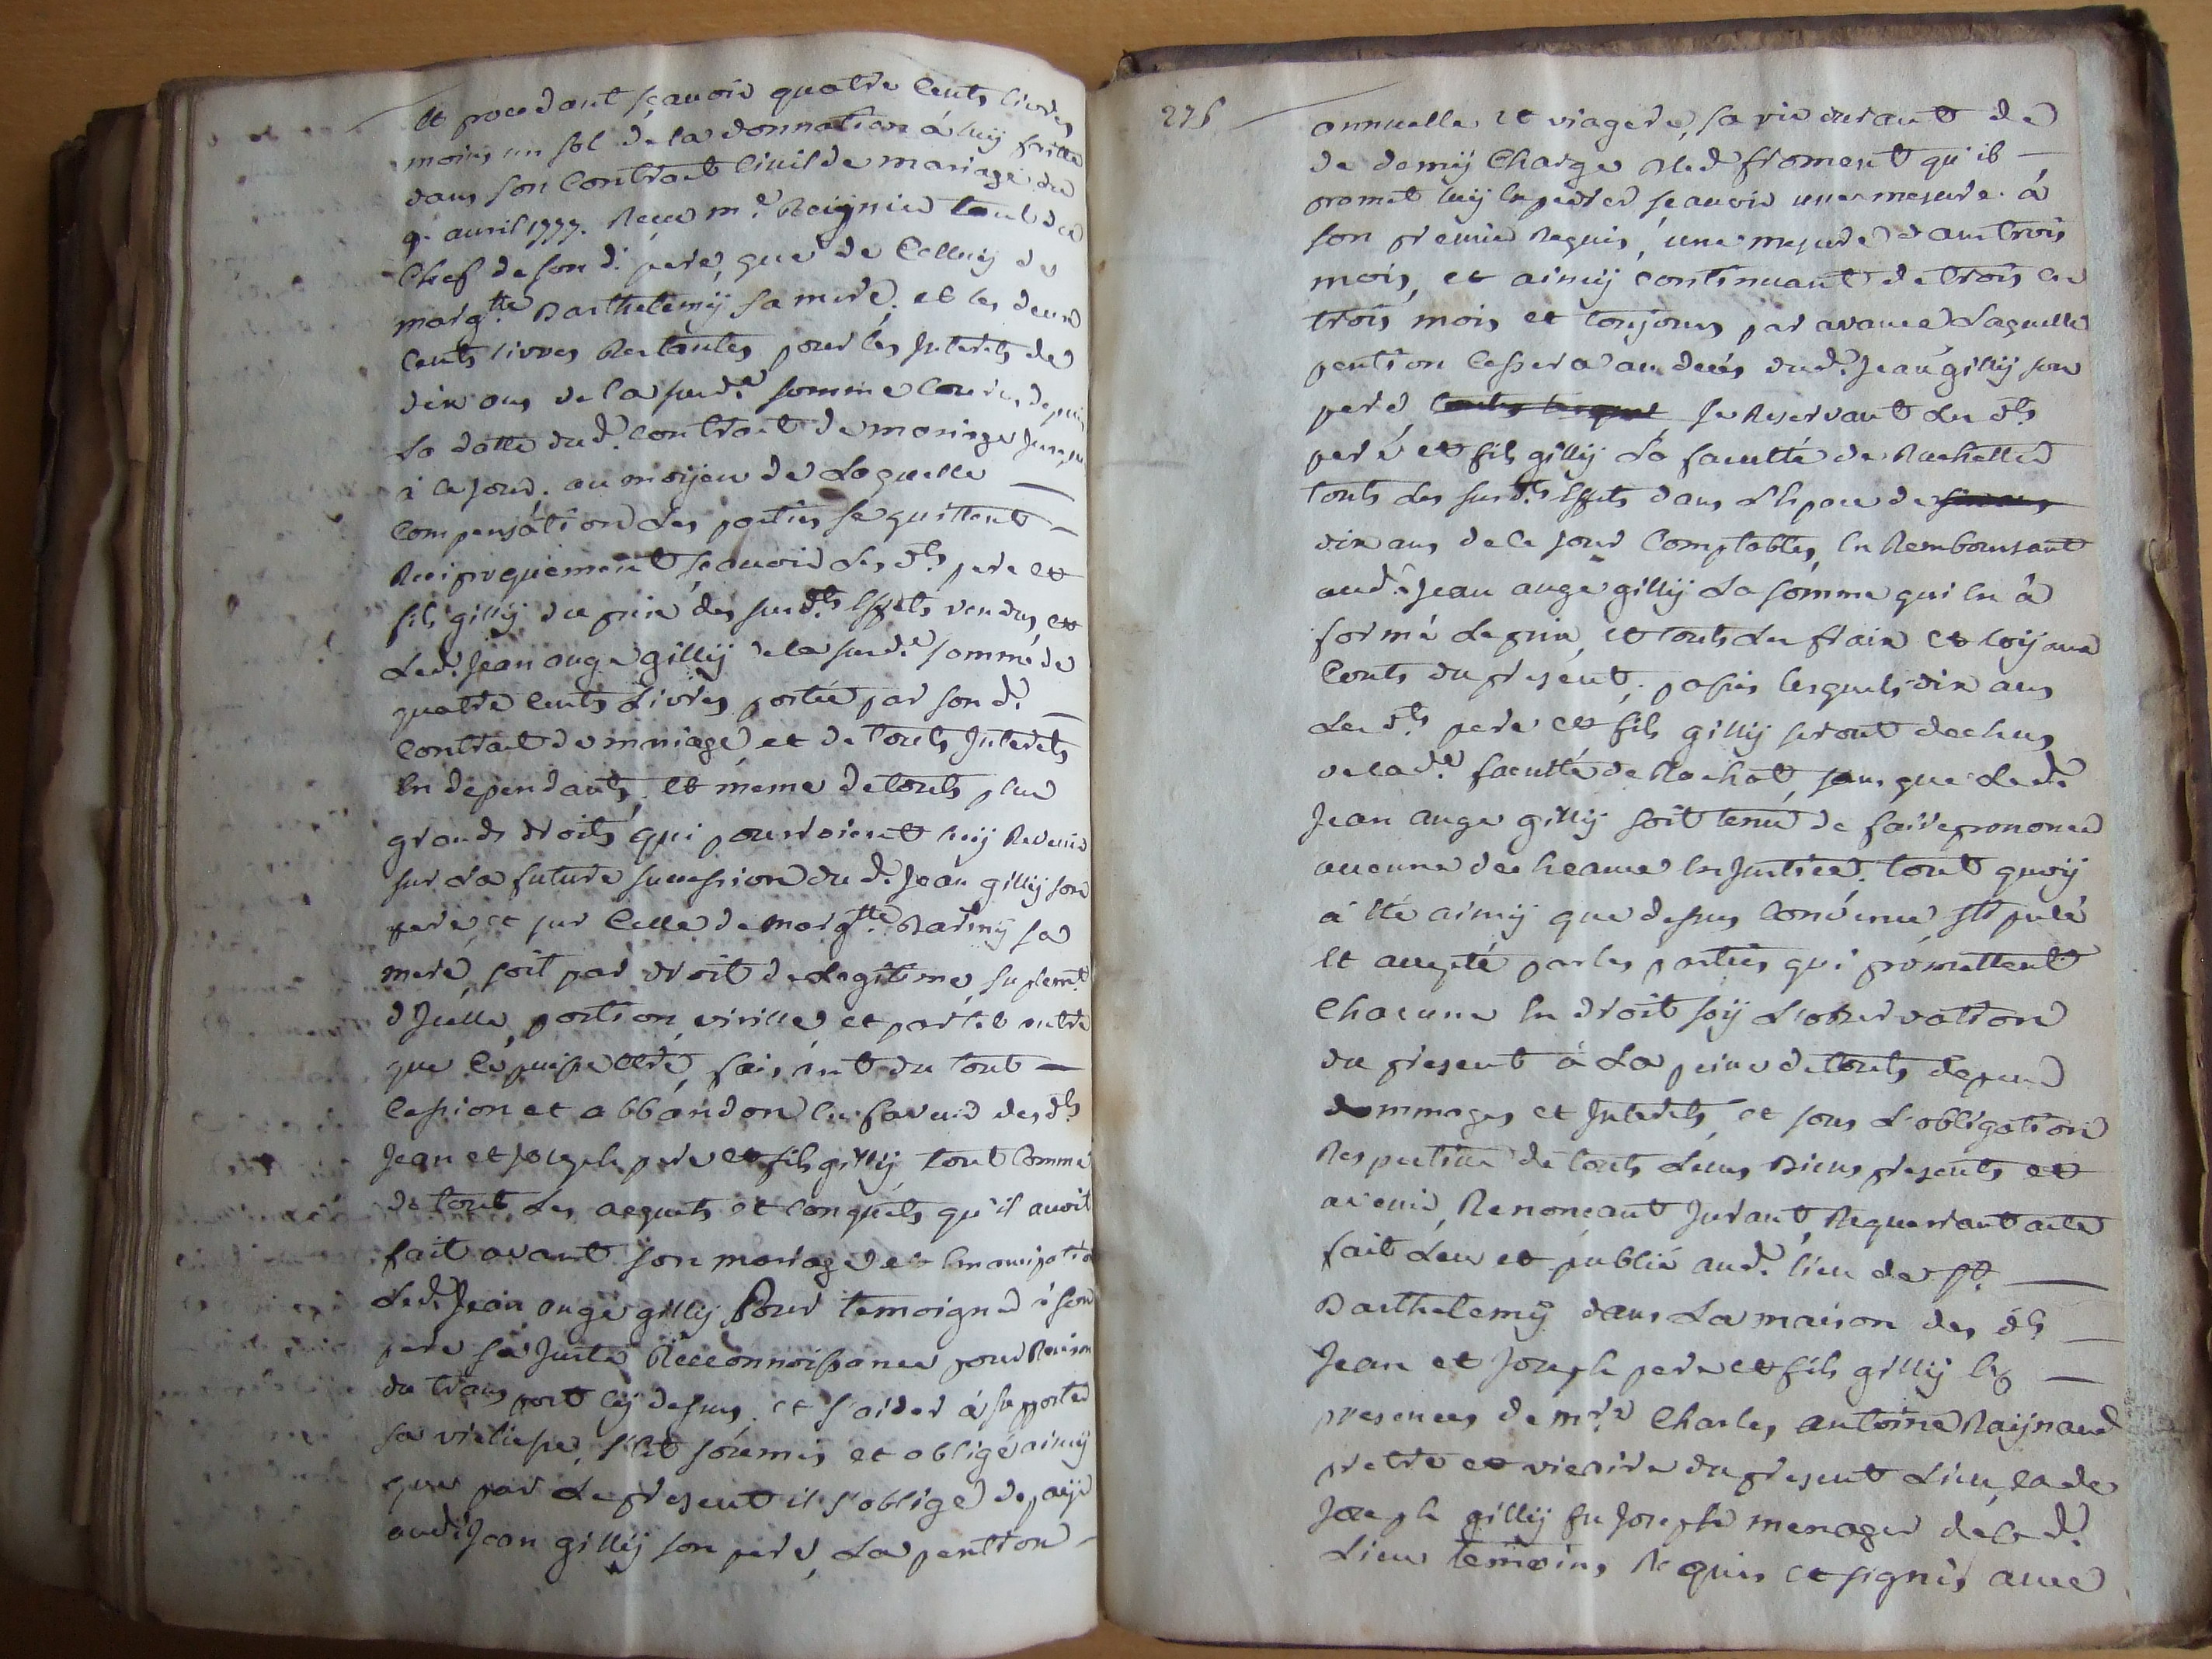 et procedant sçavoir quatre cents livres
moins un sol de la donnation à luy faitte
dans son contract civil de mariage du
9. avril 1777. Receu me. Reignier tant du
chef de son d. pere, que de celluy de
margtte Barthelemÿ sa mere, et les deux
cents livres Restantes pour les Interets de
dix ans de la susde. somme courus depuis
La datte dud. contract de mariage Jusques
à ce jour. au moÿen de Laquelle
compensation Les parties se quittent
Reciproquement sçavoir Les dts pere et
fils gillÿ du prix des susdts effets vendus, et
Led. Jean ange gillÿ de la susde. somme de
quatre cents Livres portée par son d.
contract de mariage et de touts Interets
en dependants, et meme de touts plus
grands droits qui pourroient luÿ Revenir
sur La future succession dud. Jean gillÿ son
pere, et sur celle de margtte. Barmÿ sa
mere, soit par droit de Legitime, suplemt.
d'Icelle, portion virille, et par tel autre
que ce puisse etre, faisant du tout
cession et abbandon en faveur des dts
Jean et joseph pere et fils gillÿ, tout comme
de tout Les acquets et conquets qu'il avoit
fait avant son mariage et emancipation
Led. Jean ange gillÿ Pour temoigner à son
pere sa Juste Reconnoissance pour Raison
du transport cÿ dessus, et s'aider à supporter
sa vieliesse, s'est soumis et obligé ainsÿ
que par Le present il s'oblige de paÿer
aud. Jean gillÿ son pere, La pention
276
annuelle et viagere, sa vie durant de
de demÿ charge bled froment qu'il
promet luÿ expedier sçavoir une mesure à
son premier Requis, une mesure dans trois
mois, et ainsÿ continuant de trois en
trois mois et toujours par avance Laquelle
pention cessera au decés dud. Jean gillÿ son
pere, se Reservant Les dts
pere et fils gillÿ La faculté de Rachetter
touts Les susdts effets dans L'espace de
dix ans de ce jour comptables, en Remboursant
aud. Jean ange gillÿ La somme qui en à
formé Le prix, et touts Les fraix et loÿaux
couts du present, passés lesquels dix ans
Les dts pere et fils gillÿ seront dechus
de lade. faculté de Rachat, sans que Led.
Jean ange gillÿ soit tenu de faire prononcer
aucune decheance en Justice. tout quoÿ
à été ainsÿ que dessus convenu, stipulé
et accepté par les parties qui promettent
chacune en droit soÿ L'observation
du present à La peine de touts depens
dommages et Interets, et sous L'obligation
Respective de touts Leurs Biens presents et
avenir, Renoncant Jurant, Requerrant acte
fait Leu et publié aud. lieu de St.
Barthelemÿ dans La maison des dts
Jean et Joseph pere et fils gillÿ en
presences de mre Charles antoine Raÿnaud
pretre et vicaire du present Lieu, et de
Joseph gillÿ fu Joseph menager de ce d.
Lieu temoins Requis et signés avec